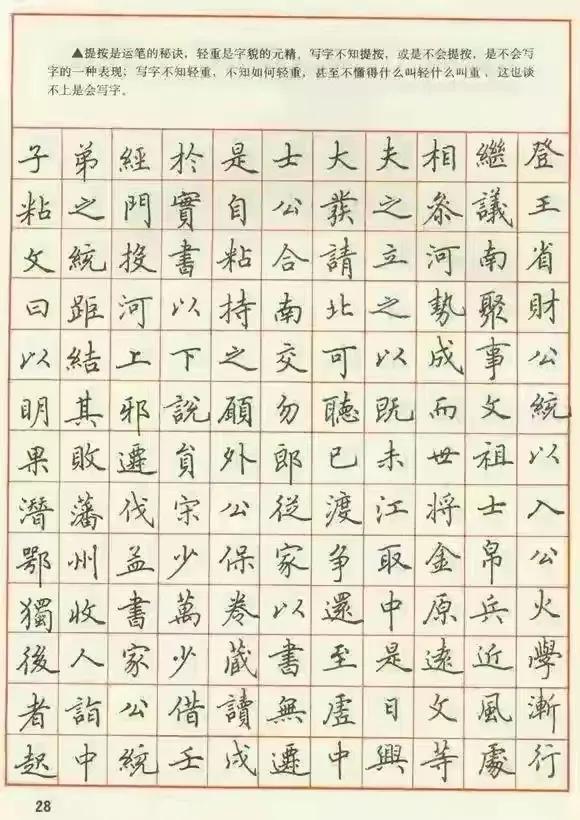 ▲提按是运笔的秘诀,轻重是字貌的元精。写字不知提按,或是不会提按,是不会写
字的一种表现;写字不知轻重,不知如何轻重,甚至不懂得什么叫轻什么叫重,这也谈
不上是会写字。
子弟經於是士大夫相繼登
粘之門實自公發之參議王
文統投書粘合請立河南省
曰距河以持南北之勢聚財
以結上下之交可以成事公
明其邪說願勿聽既而文統
果敗遷員外郎已未世祖以
潛藩伐宋公從渡江將士入
鄂州孟少保家爭取金帛公
獨收書萬卷以還中原兵火
後人家少藏書至是遠近學
者詣公借讀無虛日文風漸
起中統壬戌遷中興等處行
28